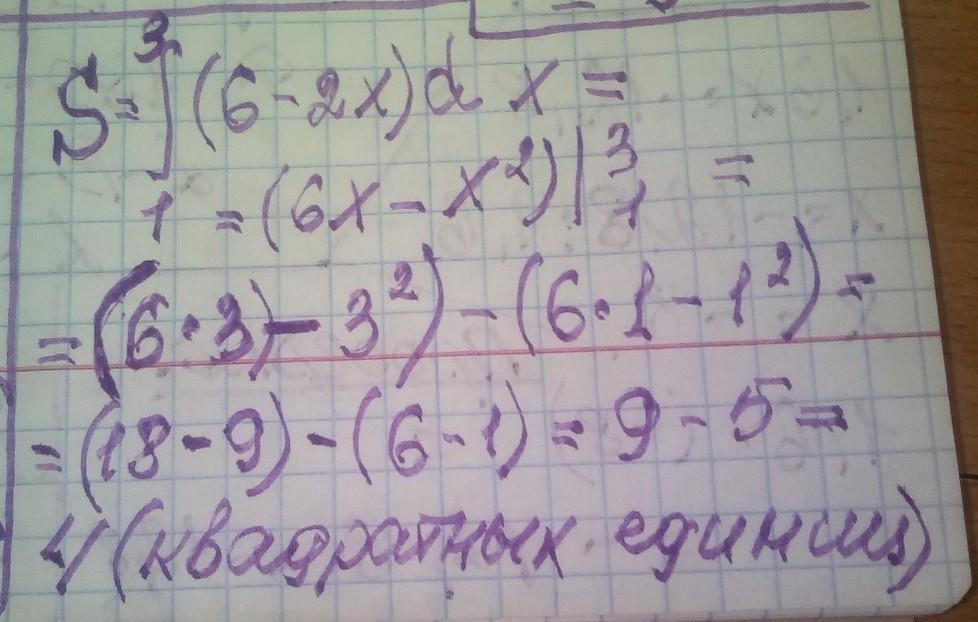 S = ∫₁³ (6 - 2x) dx =
= (6x - x²)|₁³ =
= (6·3) - 3²) - (6·1 - 1²) =
= (18 - 9) - (6 - 1) = 9 - 5 =
4 (квадратных единиц)